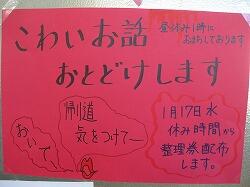 こわいお話
昼休み1時に
おはなしております
おとどけします
帰り道
気をつけてー
おいで
1月17日水
休み時間から
整理券配布
します。